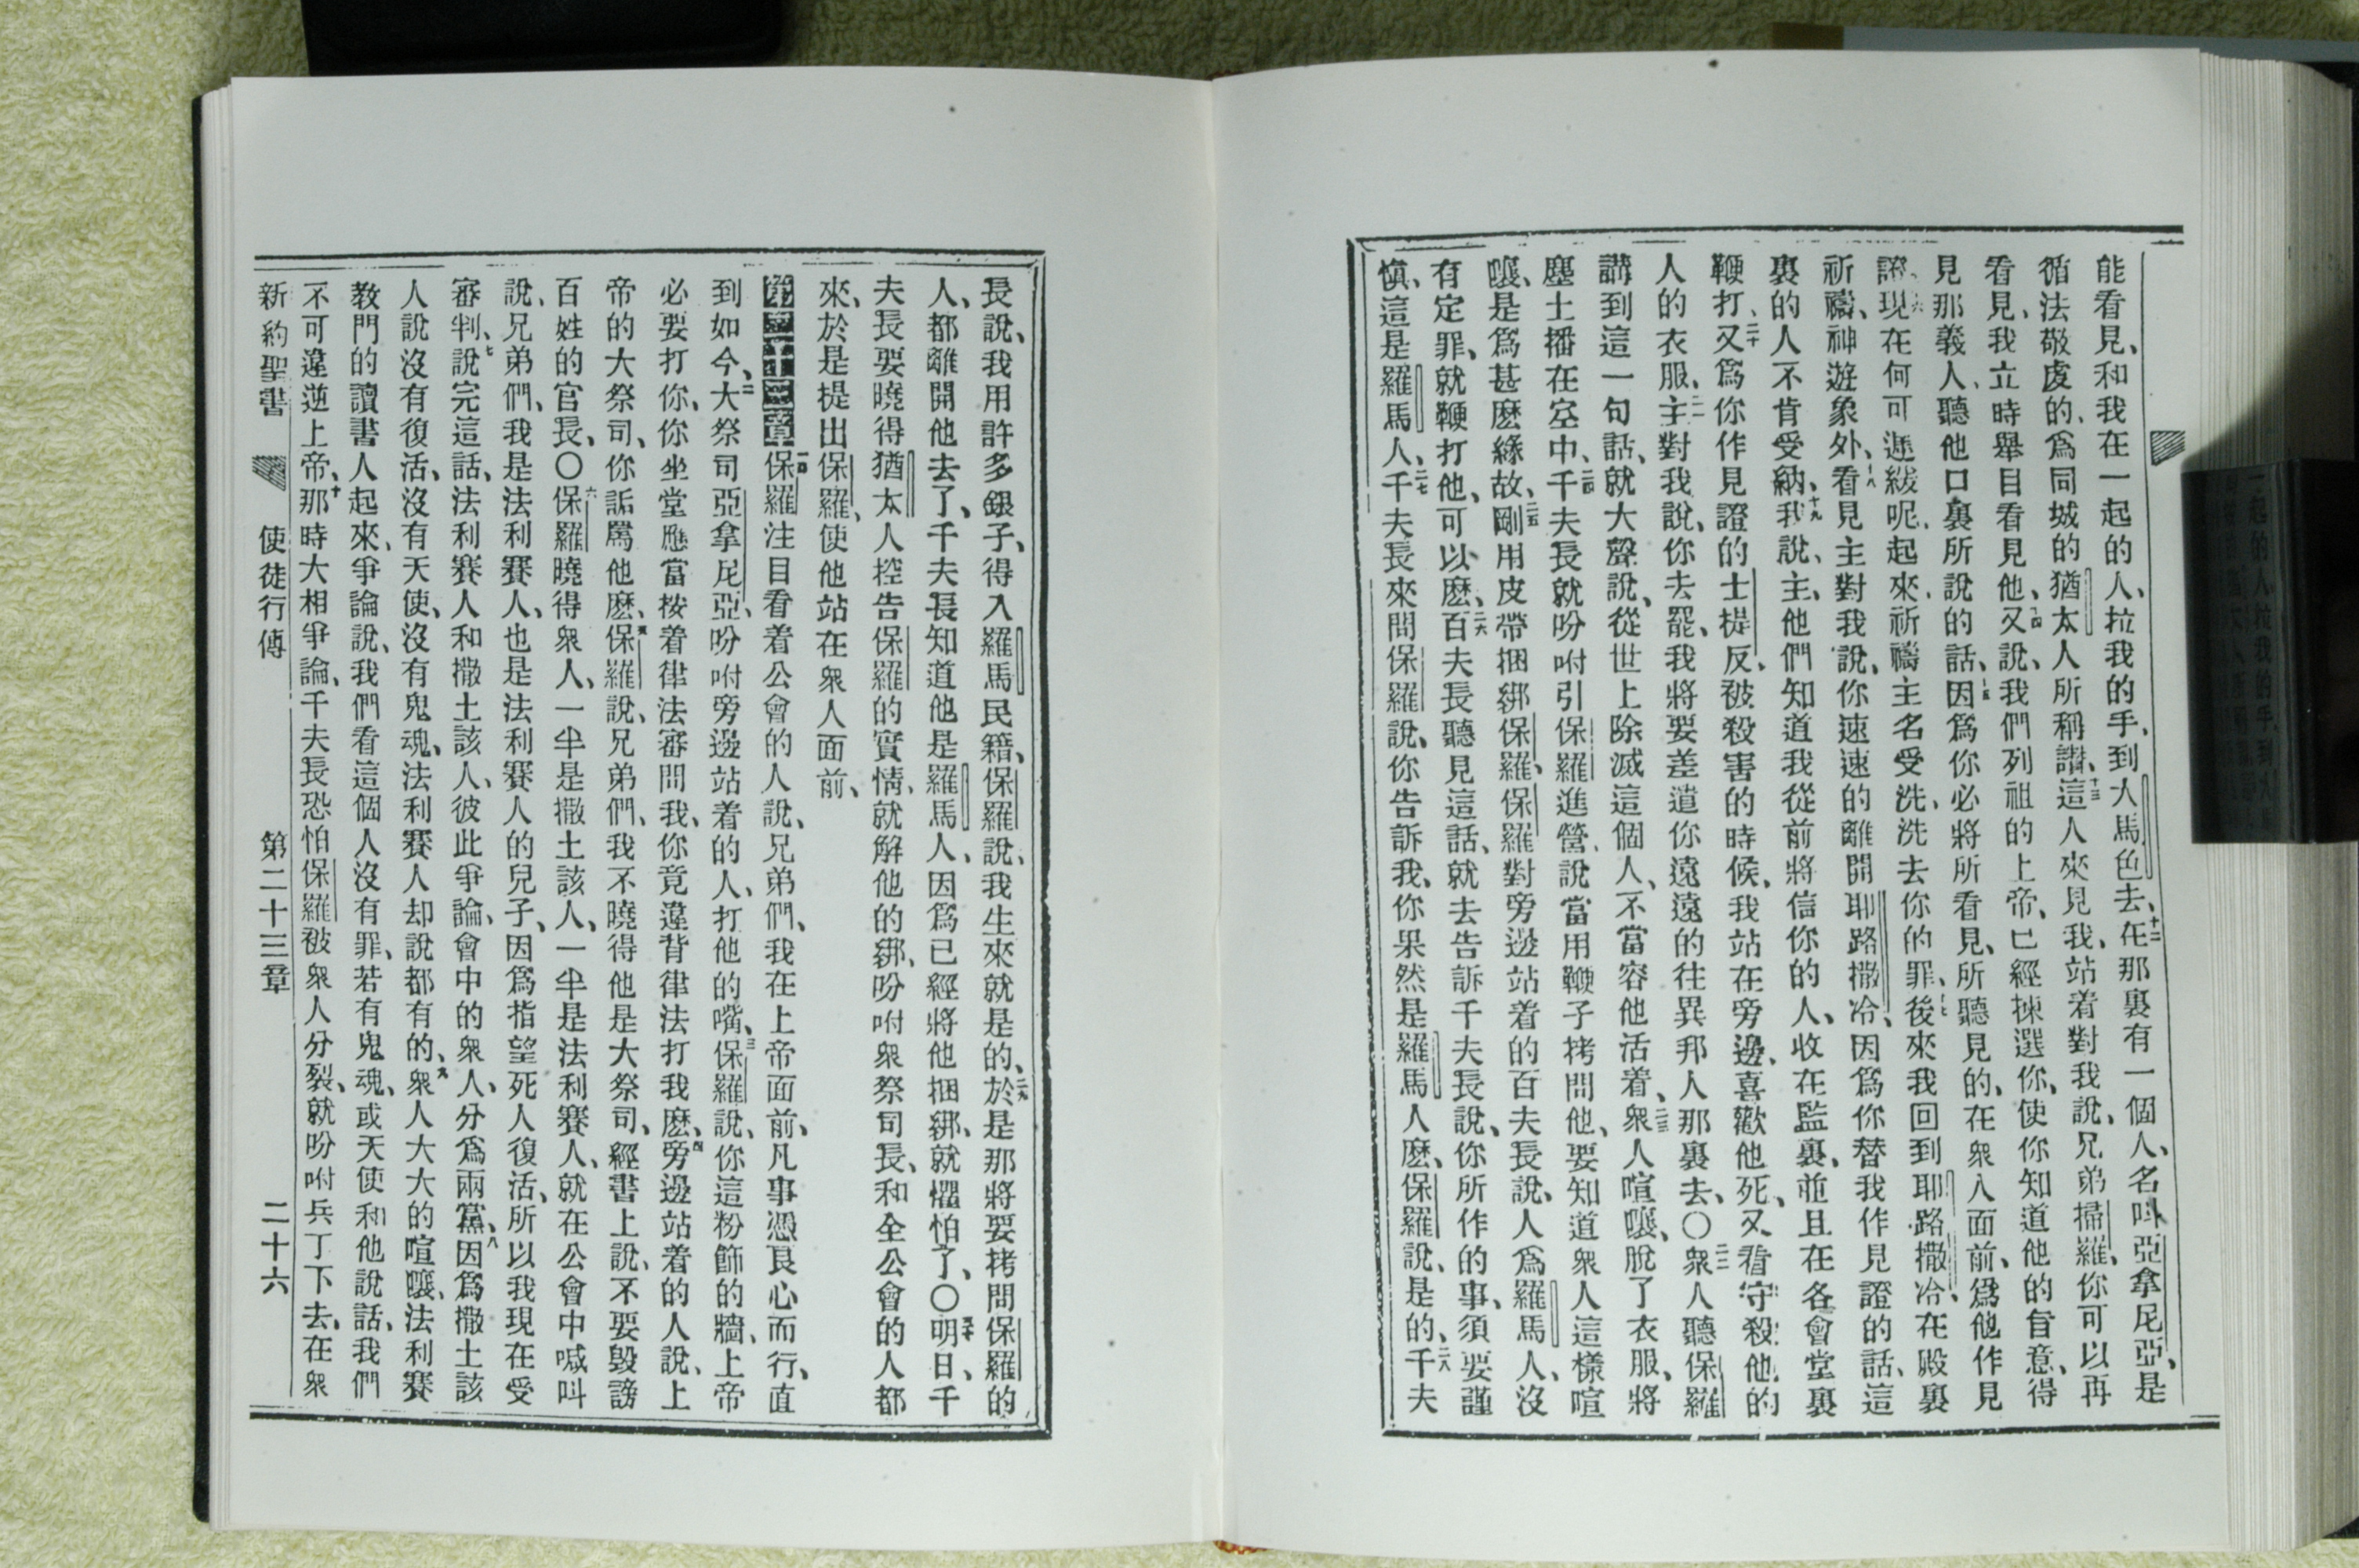 能看見、和我在一起的人、拉我的手、到大馬色去、十二在那裏有一個人、名叫亞拿尼亞、是
循法敬虔的、爲同城的猶太人所稱讚、十三這人來見我、站着對我說、兄弟掃羅、你可以再
看見、我立時舉目看見他、十四又說、我們列祖的上帝、已經揀選你、使你知道他的旨意、得
見那義人、聽他口裏所說的話、十五因爲你必將所看見、所聽見的、在衆人面前、爲他作見
證、十六現在何可遲緩呢、起來、祈禱主名受洗、洗去你的罪、十七後來我回到耶路撒冷、在殿裏
祈禱、神遊象外、十八看見主對我說、你速速的離開耶路撒冷、因爲你替我作見證的話、這
裏的人不肯受納、十九我說、主、他們知道我從前將信你的人、收在監裏、並且在各會堂裏
鞭打、二十又爲你作見證的士提反、被殺害的時候、我站在旁邊、喜歡他死、又看守殺他的
人的衣服、二一主對我說、你去罷、我將要差遣你遠遠的往異邦人那裏去、〇二二衆人聽保羅
講到這一句話、就大聲說、從世上除滅這個人、不當容他活着、二三衆人喧嚷、脫了衣服、將
塵土播在空中、二四千夫長就吩咐引保羅進營、說當用鞭子拷問他、要知道衆人這樣喧
嚷、是爲甚麽緣故、二五剛用皮帶捆綁保羅、保羅對旁邊站着的百夫長說、人爲羅馬人、沒
有定罪、就鞭打他、可以麽、二六百夫長聽見這話、就去告訴千夫長說、你所作的事、須要謹
愼、這是羅馬人、二七千夫長來問保羅說、你告訴我、你果然是羅馬人麽、保羅說、是的、二八千夫
長說、我用許多銀子、得入羅馬民籍、保羅說、我生來就是的、二九於是那將要拷問保羅的
人、都離開他去了、千夫長知道他是羅馬人、因爲已經將他捆綁、就懼怕了、〇三十明日、千
夫長要曉得猶太人控告保羅的實情、就解他的綁、吩咐衆祭司長、和全公會的人都
來、於是提出保羅、使他站在衆人面前、
第二十三章一保羅注目看着公會的人、說、兄弟們、我在上帝面前、凡事憑良心而行、直
到如今、二大祭司亞拿尼亞、吩咐旁邊站着的人、打他的嘴、三保羅說、你這粉飾的牆、上帝
必要打你、你坐堂應當按着律法審問我、你竟違背律法打我麽、四旁邊站着的人說、上
帝的大祭司、你詬罵他麽、五保羅說、兄弟們、我不曉得他是大祭司、經書上說、不要毀謗
百姓的官長、〇六保羅曉得衆人、一半是撒土該人、一半是法利賽人、就在公會中喊叫
說、兄弟們、我是法利賽人、也是法利賽人的兒子、因爲指望死人復活、所以我現在受
審判、七說完這話、法利賽人和撒土該人、彼此爭論、會中的衆人、分爲兩黨、八因爲撒土該
人說沒有復活、沒有天使、沒有鬼魂、法利賽人却說都有的、九衆人大大的喧嚷、法利賽
教門的讀書人起來、爭論說、我們看這個人沒有罪、若有鬼魂、或天使和他說話、我們
不可違逆上帝、十那時大相爭論、千夫長恐怕保羅被衆人分裂、就吩咐兵丁下去、在衆
新約聖書 使徒行傳 第二十三章 二十六